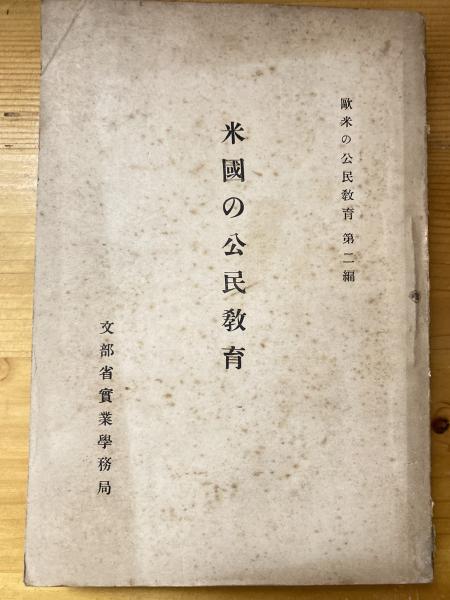 歐米の公民敎育 第二編
米國の公民敎育
文部省實業學務局